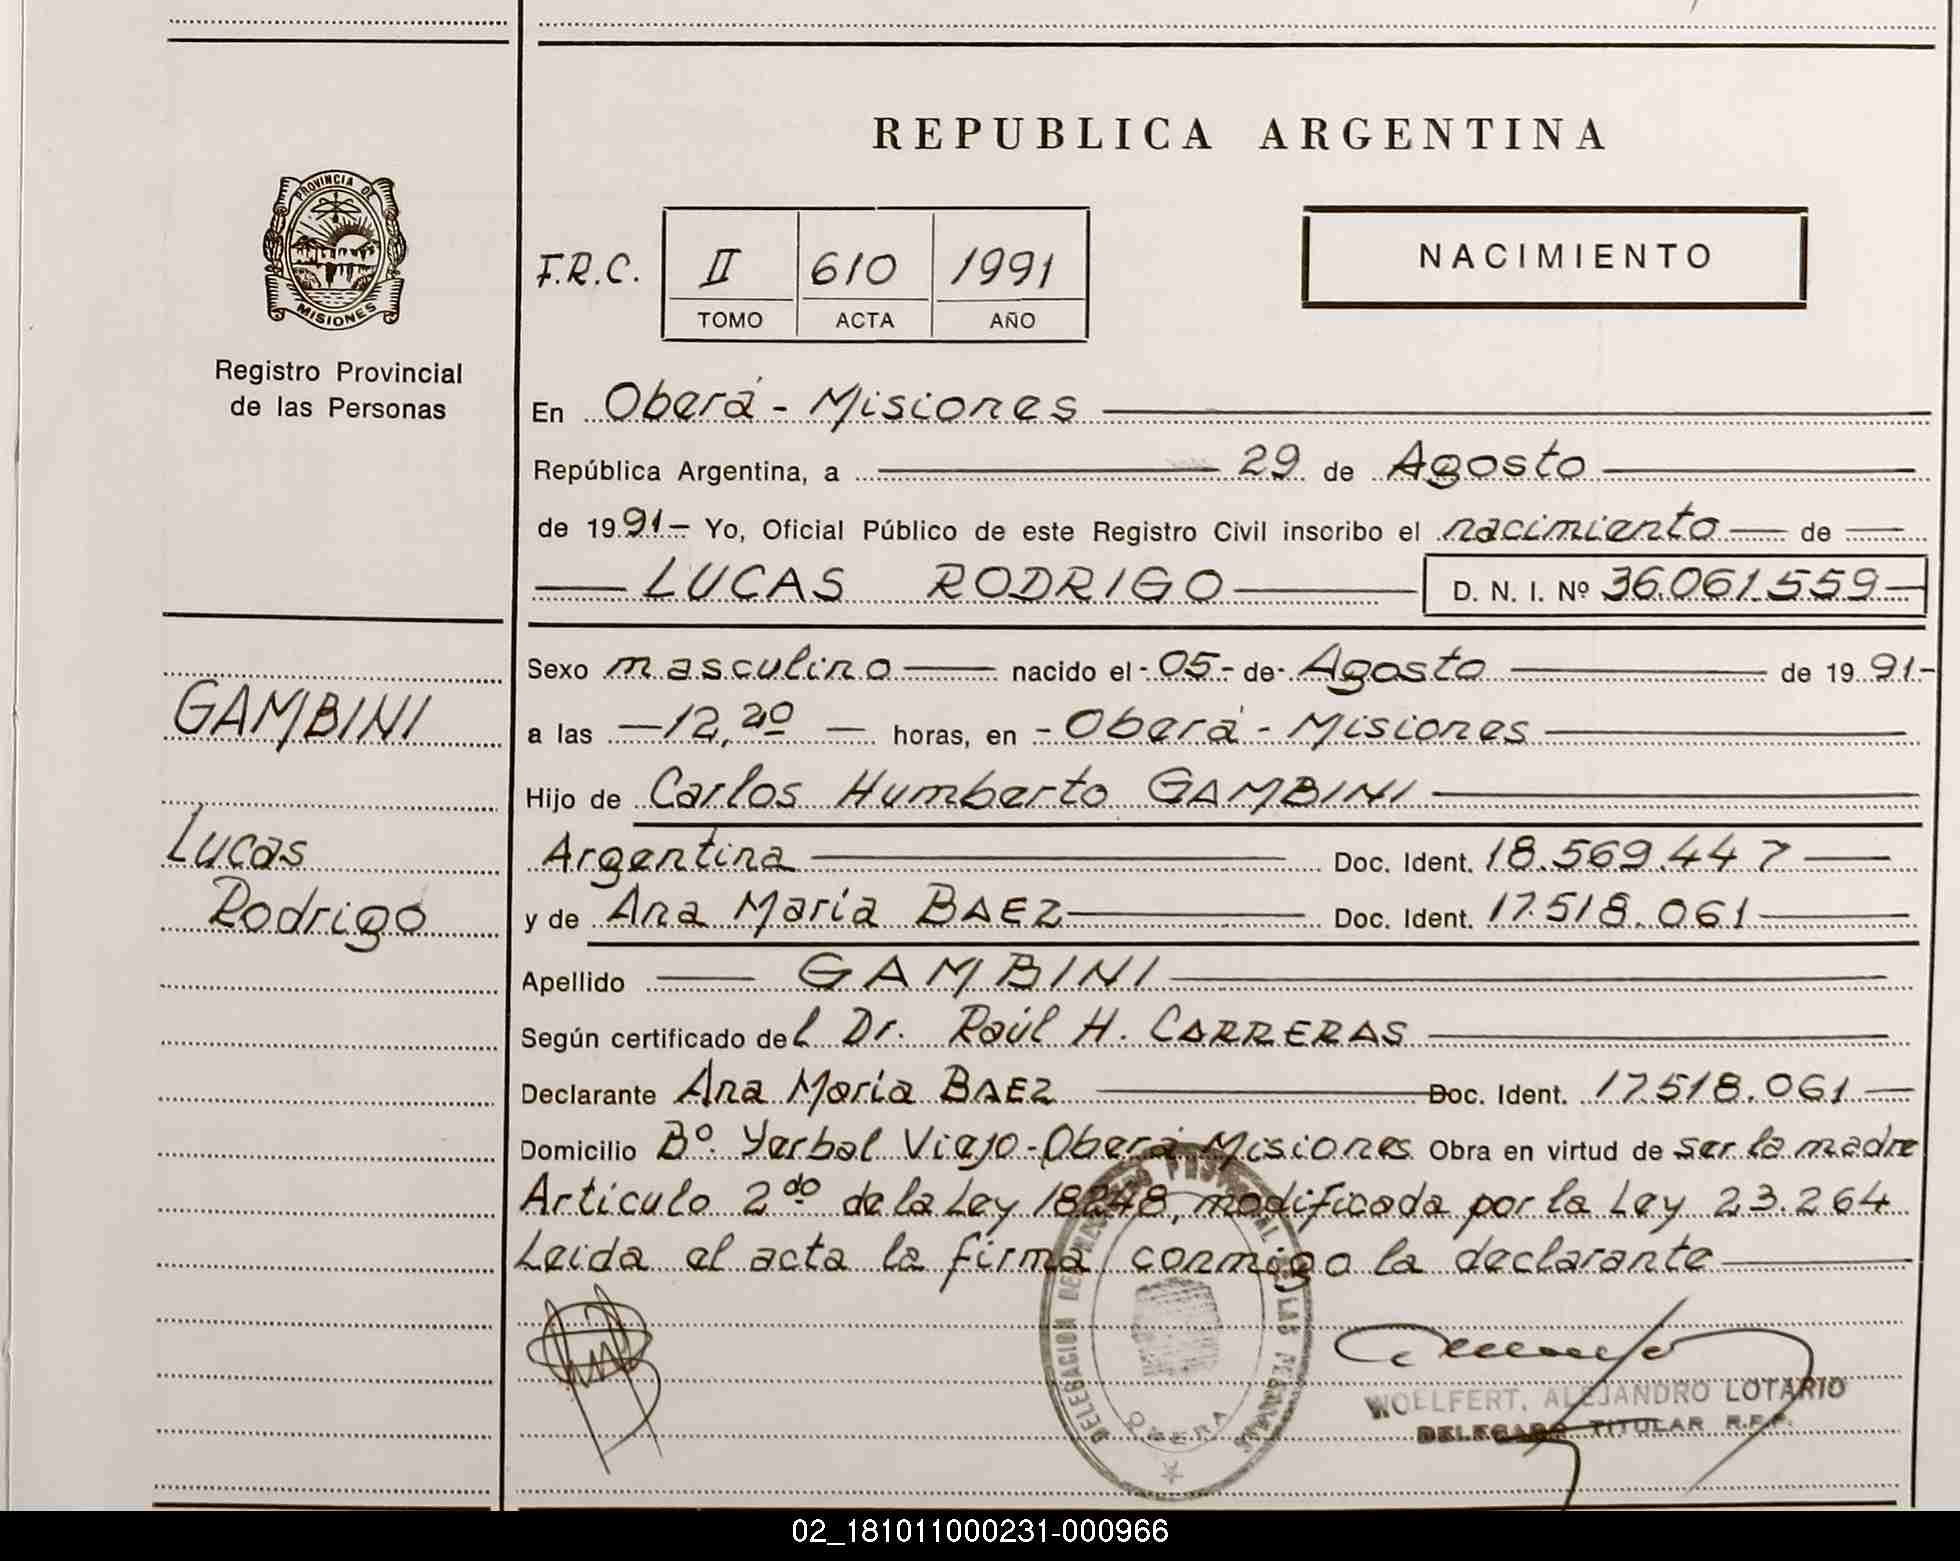 REPUBLICA ARGENTINA
PROVINCIA DE
MISIONES
Registro Provincial
de las Personas
F.R.C. II 610 1991
TOMO ACTA AÑO
NACIMIENTO
En Oberá - Misiones
República Argentina, a 29 de Agosto
de 1991- Yo, Oficial Público de este Registro Civil inscribo el nacimiento de
LUCAS RODRIGO D. N. I. Nº 36.061.559-
GAMBINI
Lucas
Rodrigo
Sexo masculino nacido el - 05 - de - Agosto de 1991-
a las -12,20 - horas, en - Oberá - Misiones
Hijo de Carlos Humberto GAMBINI
Argentina Doc. Ident. 18.569.447
y de Ana María BAEZ Doc. Ident. 17.518.061
Apellido GAMBINI
Según certificado del Dr. Raúl H. CARRERAS
Declarante Ana María BAEZ Doc. Ident. 17.518.061
Domicilio Bº. Yerbal Viejo - Oberá Misiones Obra en virtud de ser la madre
Artículo 2do de la Ley 18248, modificada por la Ley 23.264
Leida el acta la firma conmigo la declarante
DELEGACION DEL REGISTRO PROVINCIAL DE LAS PERSONAS
OBERA
WOLLFERT, ALEJANDRO LOTARIO
DELEGADO TITULAR R.P.P.
02_181011000231-000966